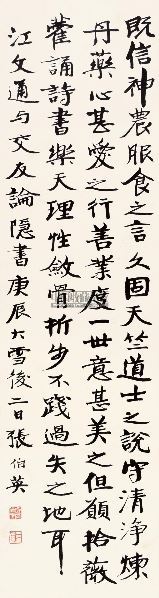 既信神農服食之言久固天竺道士之說守清淨煉
丹藥心甚愛之行善業度一世意甚美之但願拾薇
藿誦詩書樂天理性斂骨折步不踐過失之地耳
江文通与交友論隱書庚辰大雪後二日張伯英